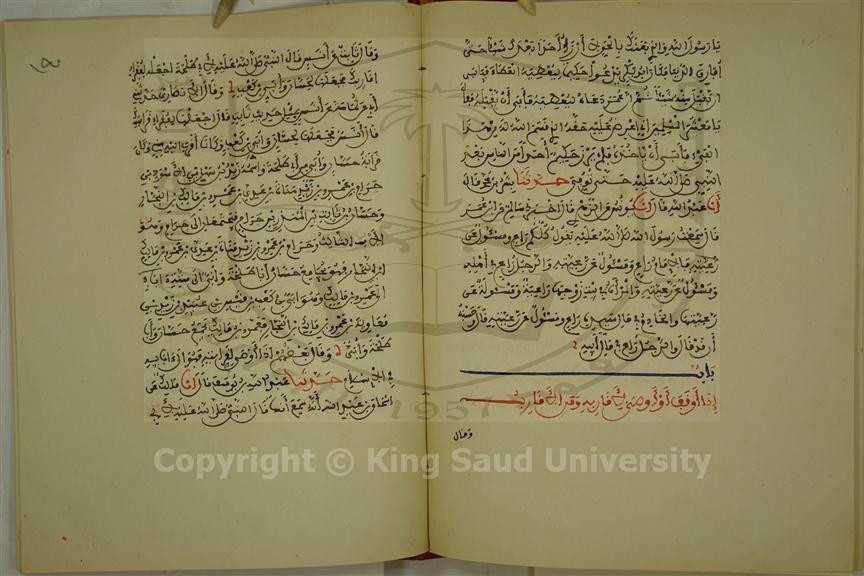 يا رسول الله والذي بعثك بالحق لا أرزأ أحدا بعدك شيئا حتى
أفارق الدنيا فكان أبو بكر يدعو حكيما ليعطيه العطاء فيأبى
أن يقبل منه شيئا ثم إن عمر دعاه ليعطيه فأبى أن يقبله فقال
يا معشر المسلمين إني أعرض عليه حقه الذي قسم الله له من هذا
الفيء فيأبى أن يأخذه فلم يرزأ حكيم أحدا من الناس بعد
النبي صلى الله عليه حتى توفي حدثنا بشر بن محمد قال
أنا عبد الله قال أنا يونس عن الزهري قال أخبرني سالم عن ابن عمر
قال سمعت رسول الله صلى الله عليه يقول كلكم راع ومسئول عن
رعيته فالإمام راع ومسئول عن رعيته والرجل راع في أهله
ومسئول عن رعيته والمرأة في بيت زوجها راعية ومسئولة عن
رعيتها والخادم في مال سيده راع ومسئول عن رعيته قال وحسبت
أن قد قال والرجل راع في مال أبيه
باب
إذا أوقف أو أوصى لأقاربه ومن الأقارب
وقال
وقال ثابت عن أنس قال النبي صلى الله عليه لأبي طلحة اجعله لفقراء
أقاربك فجعلها لحسان وأبي بن كعب وقال الأنصاري حدثني
أبي عن ثمامة عن أنس بمثل حديث ثابت قال اجعلها لفقراء قرابتك
قال أنس فجعلها لحسان وأبي بن كعب وكانا أقرب إليه مني وكان
قرابة حسان وأبي من أبي طلحة واسمه زيد بن سهل بن الأسود بن
حرام بن عمرو بن زيد مناة بن عدي بن عمرو بن مالك بن النجار
وحسان بن ثابت بن المنذر بن حرام فيجتمعان إلى حرام وهو
الأب الثالث وحرام بن عمرو بن زيد مناة بن عدي بن عمرو بن مالك
ابن النجار فهو يجامع حسان أبا طلحة وأبي إلى ستة آباء
إلى عمرو بن مالك وهو أبي بن كعب بن قيس بن عبيد بن زيد بن
معاوية بن عمرو بن مالك بن النجار فعمرو بن مالك يجمع حسان وأبا
طلحة وأبي وقال بعضهم إذا أوصى لقرابته فهو إلى آبائه
في الإسلام حدثنا عبد الله بن يوسف قال أنا مالك عن
إسحاق بن عبد الله أنه سمع أنسا قال النبي صلى الله عليه لأبي
1957
Copyright © King Saud University